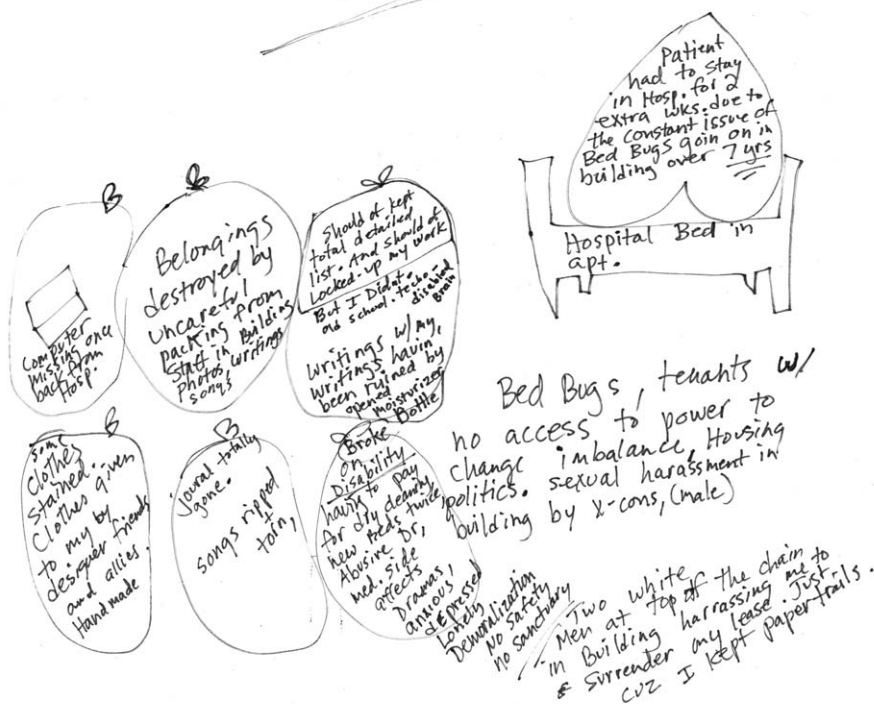 Patient
had to stay
in Hosp. for 2
extra wks. due to
the constant issue of
Bed Bugs goin on in
building over 7 yrs
Hospital Bed in
apt.
Computer
missing once
back from
Hosp.
Belongings
destroyed by
uncareful
packing from
Staff in Building
photos, writings
songs
Should of kept
total detailed
list. And should of
Locked-up my work
But I Didnt.
old school. techo.
disabled
Brain
Writings w/ my,
writings havin
been ruined by
opened
moisturizer
Bottle
some
Clothes
stained.
Clothes given
to my by
designer friends
and allies.
Handmade
Joural totally
gone.
songs ripped
torn,
Broke
on
Disability
having to pay
for dry cleaning,
new beds twice
Abusive Dr,
med. side
affects
Dramas,
anxious
depressed
Lonely
Demoralization
No safety
no sanctuary
Bed Bugs, tenants w/
no access to power to
change imbalance, Housing
politics. sexual harassment in
building by x-cons, (male)
Two white
Men at top of the chain
in Building harrassing me to
surrender my lease. Just
cuz I kept papertrails.